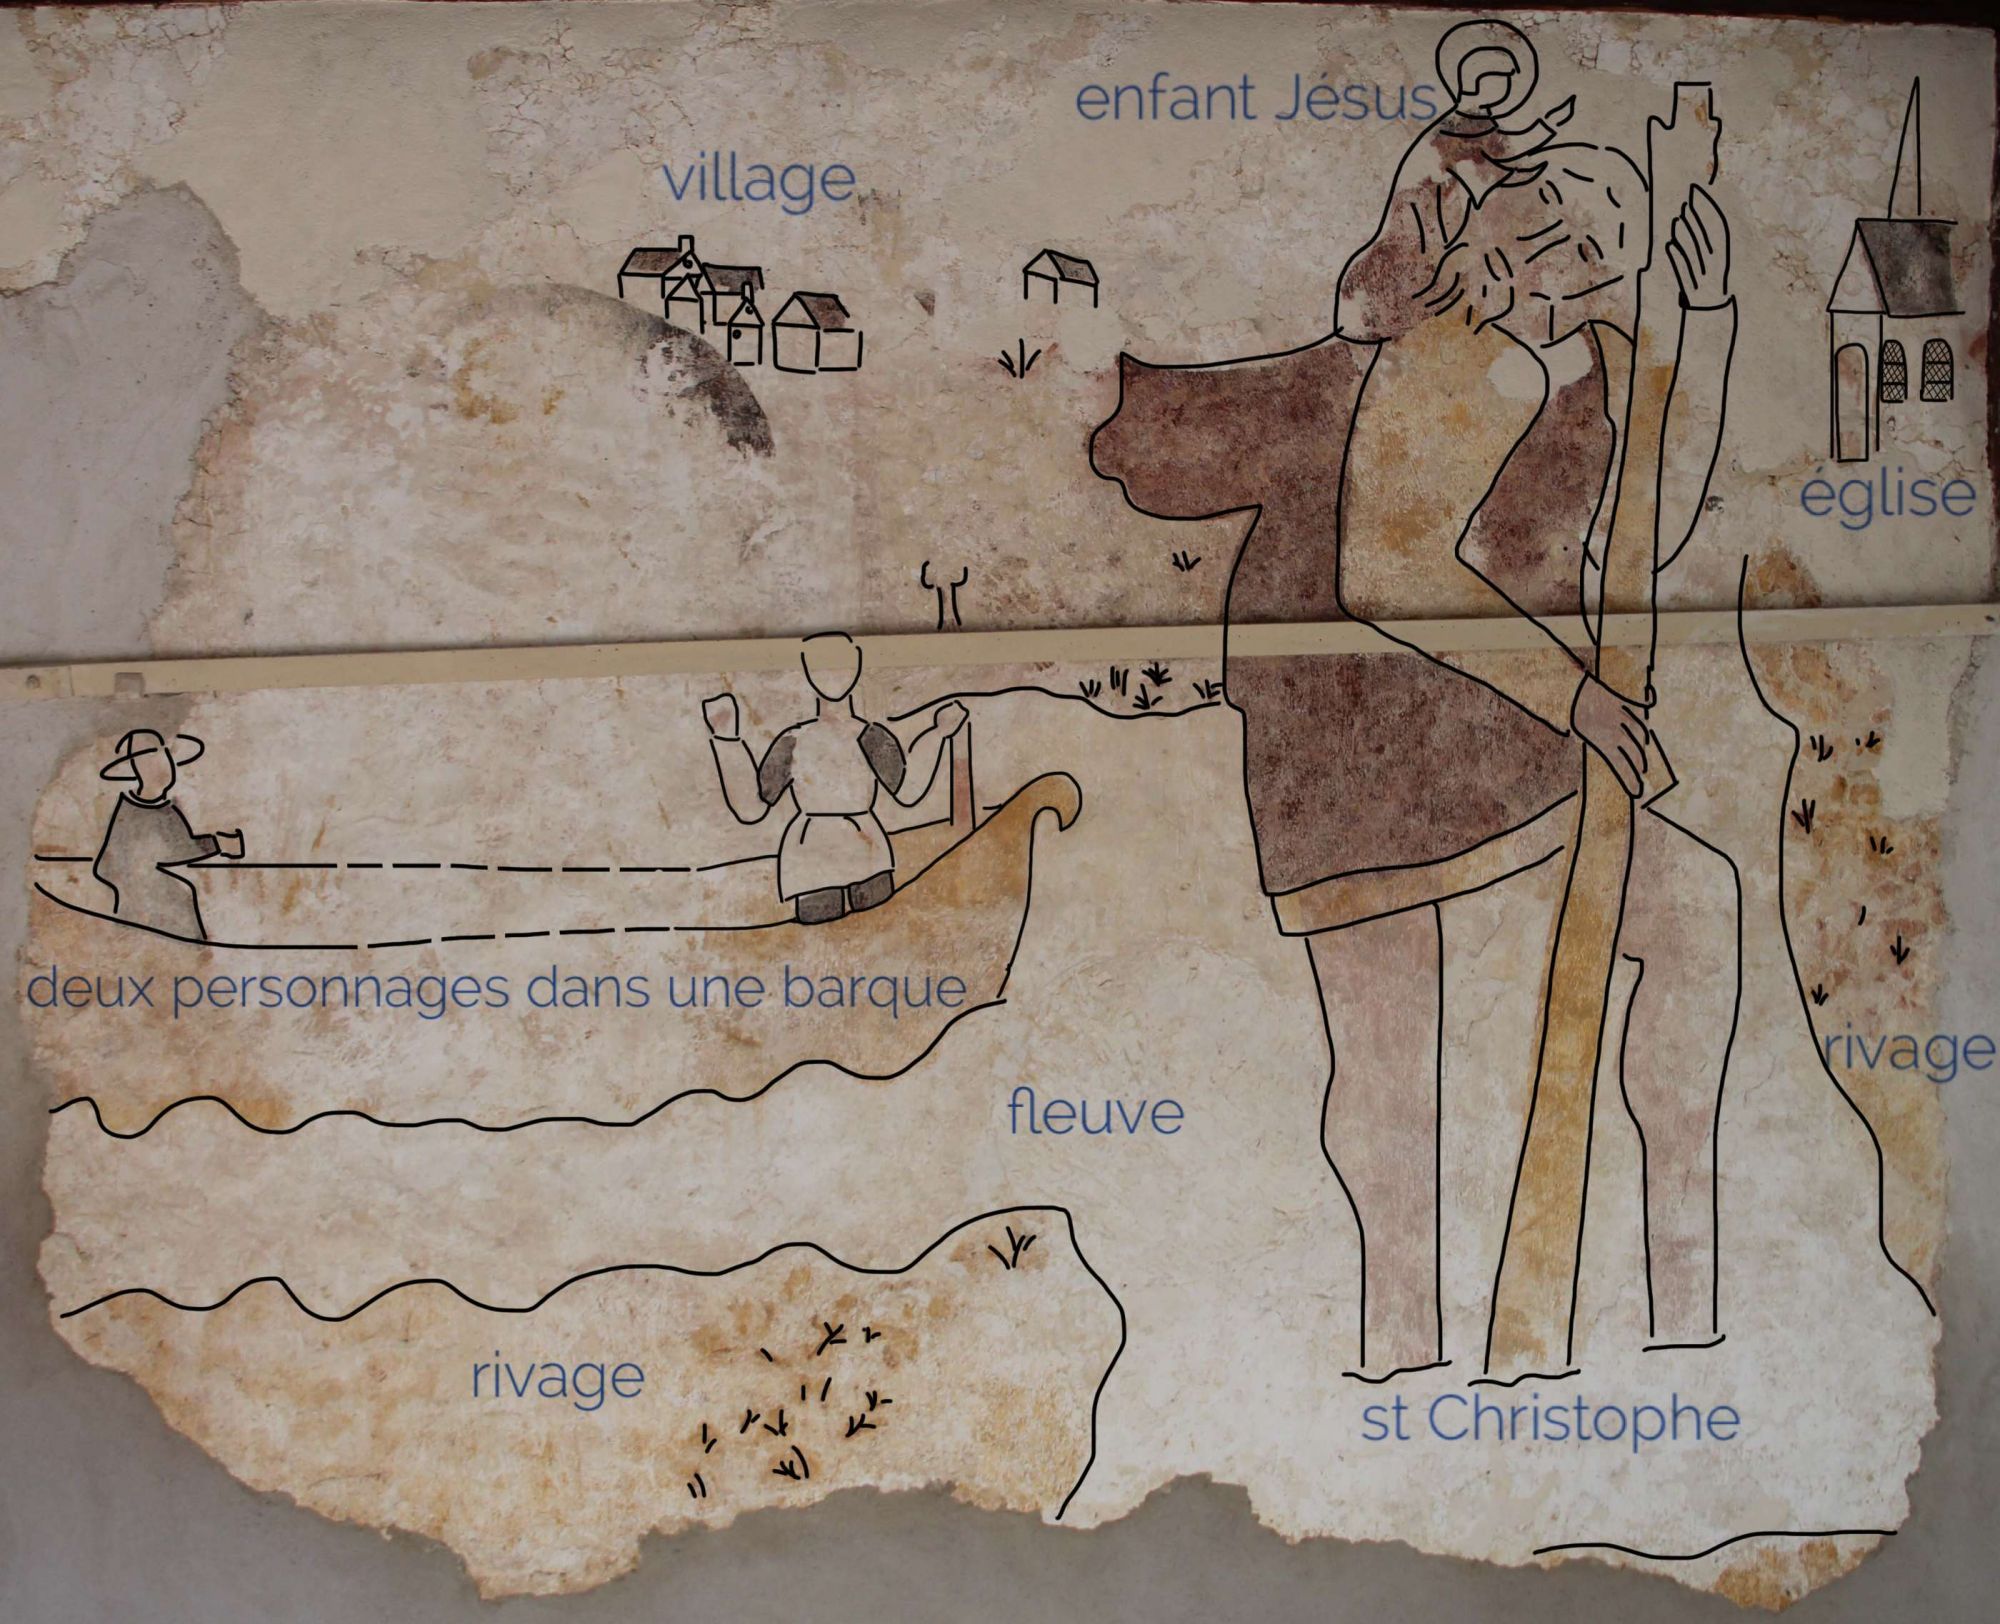 enfant Jésus
village
église
deux personnages dans une barque
rivage
fleuve
rivage
st Christophe